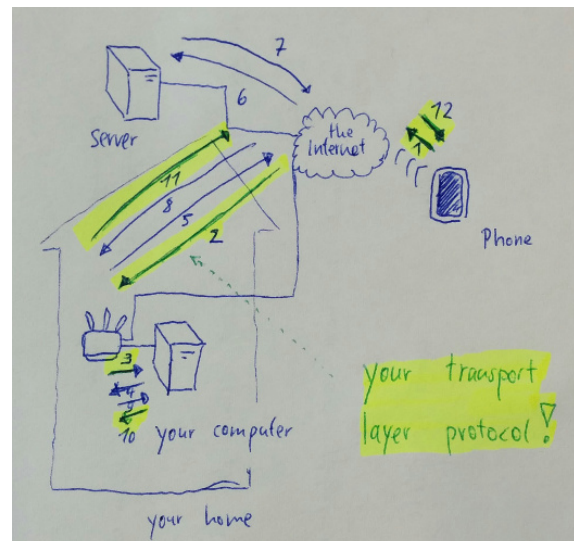 7
6
the
Internet
12
1
Server
11
8
5
2
Phone
3
4
9
10
your computer
your transport
layer protocol!
your home